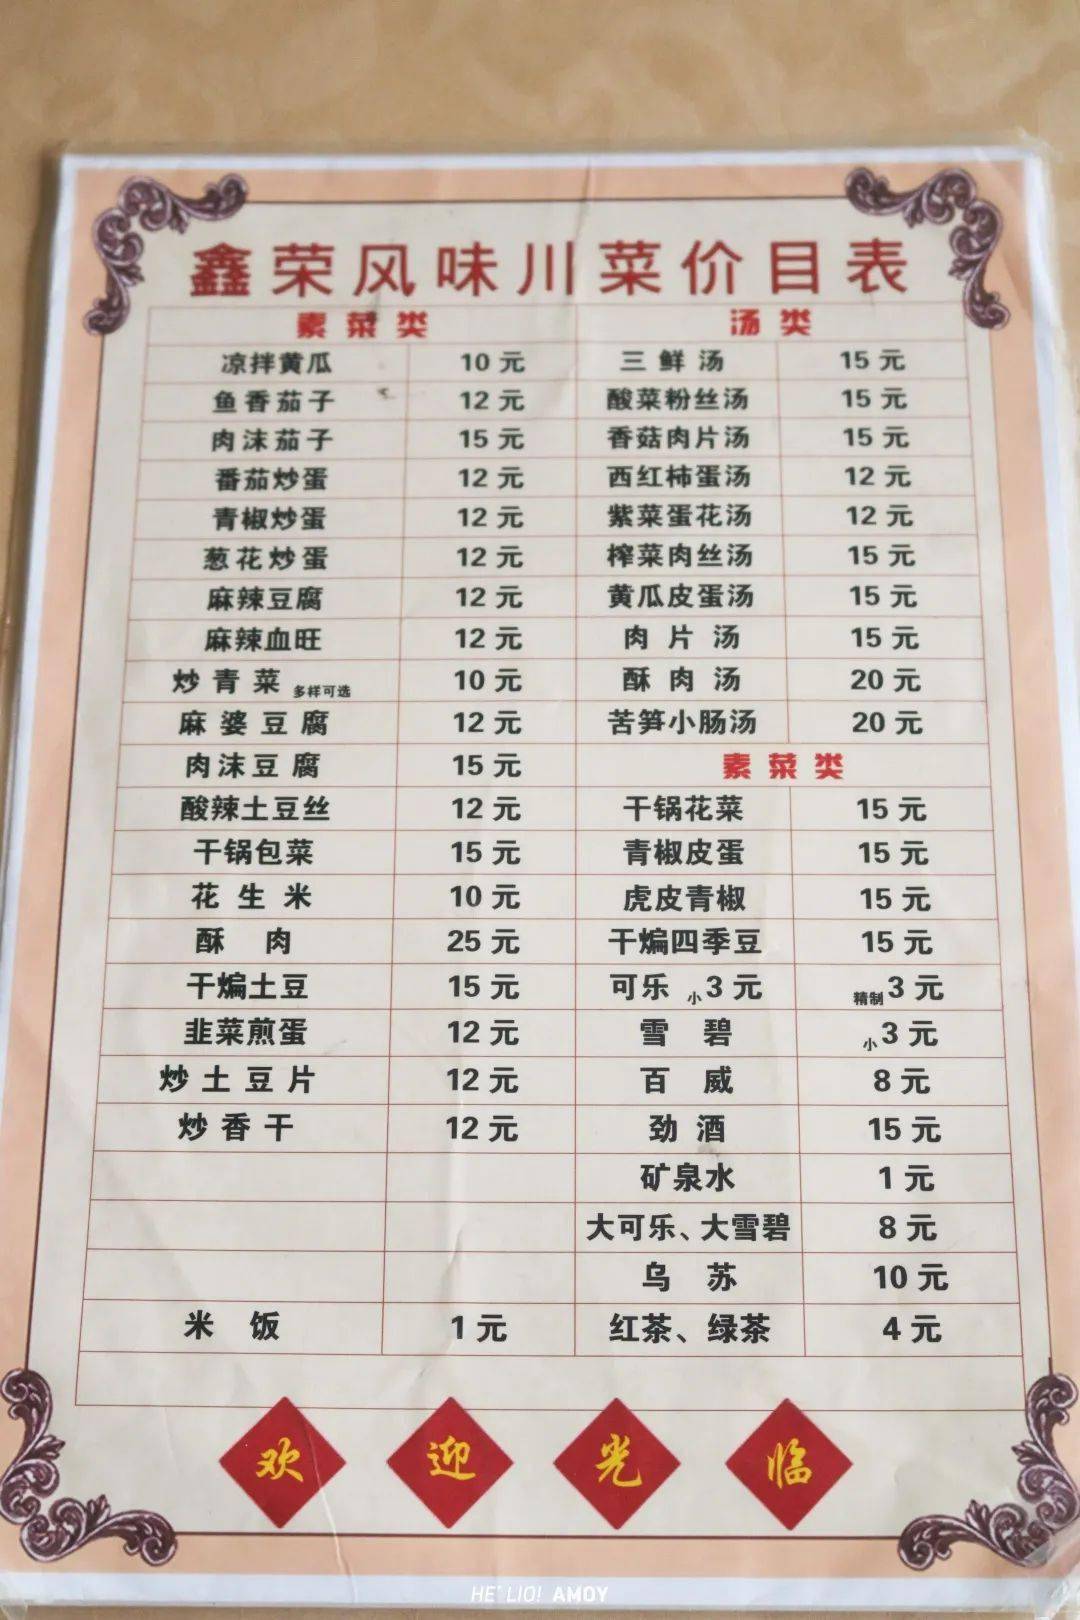 鑫荣风味川菜价目表
素菜类 汤类
凉拌黄瓜 10元 三鲜汤 15元
鱼香茄子 12元 酸菜粉丝汤 15元
肉沫茄子 15元 香菇肉片汤 15元
番茄炒蛋 12元 西红柿蛋汤 12元
青椒炒蛋 12元 紫菜蛋花汤 12元
葱花炒蛋 12元 榨菜肉丝汤 15元
麻辣豆腐 12元 黄瓜皮蛋汤 15元
麻辣血旺 12元 肉片汤 15元
炒青菜 多样可选 10元 酥肉汤 20元
麻婆豆腐 12元 苦笋小肠汤 20元
肉沫豆腐 15元 素菜类
酸辣土豆丝 12元 干锅花菜 15元
干锅包菜 15元 青椒皮蛋 15元
花生米 10元 虎皮青椒 15元
酥肉 25元 干煸四季豆 15元
干煸土豆 15元 可乐 小3元 精制3元
韭菜煎蛋 12元 雪碧 小3元
炒土豆片 12元 百威 8元
炒香干 12元 劲酒 15元
矿泉水 1元
大可乐、大雪碧 8元
乌苏 10元
米饭 1元 红茶、绿茶 4元
欢迎光临
HE'LIO! AMOY